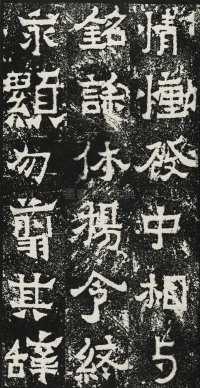 情慟發中相与
銘誄休揚令終
永顯勿翦其